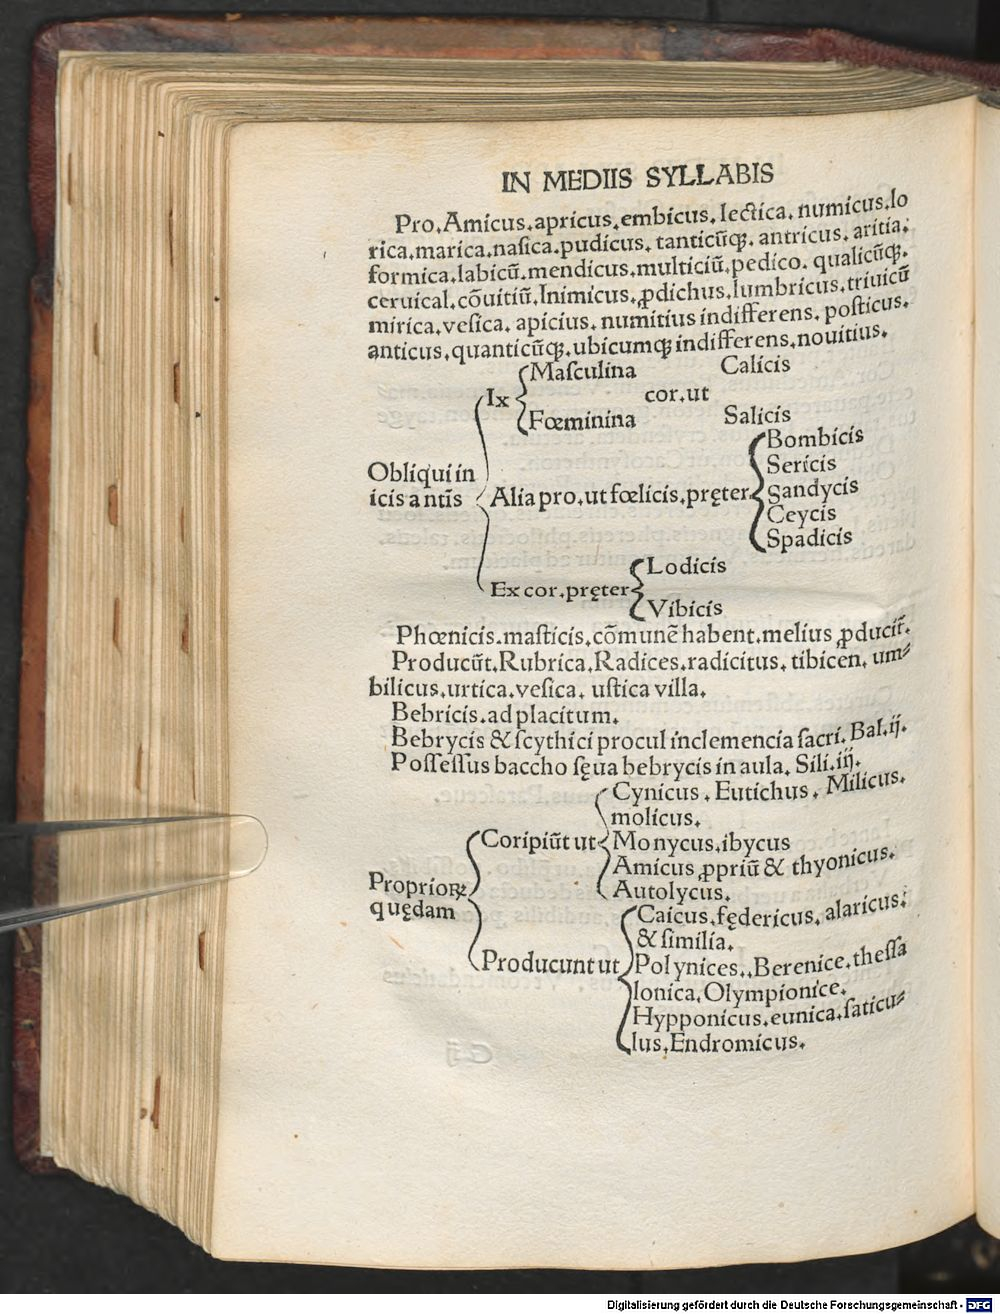 IN MEDIIS SYLLABIS
Pro. Amicus. apricus. embicus. lectica. numicus. lo
rica. marica. nasica. pudicus. tanticūqꝫ. antricus. aritia.
formica. labicū. mendicus. multiciū. pedico. qualicūqꝫ.
ceruical. cōuitiū. Inimicus. ꝓdichus. lumbricus. triuicū
mirica. vesica. apicius. numitius indifferens. posticus.
anticus. quanticūqꝫ. ubicumqꝫ indifferens. nouitius.
Obliqui in
icis a ntīs
Ix
Masculina
Fœminina
cor. ut
Calicis
Salicis
Alia pro. ut fœlicis. pręter
Bombicis
Sericis
Sandycis
Ceycis
Spadicis
Ex cor. pręter
Lodicis
Vibicis
Phœnicis. masticis. cōmunē habent. melius ꝓducit̃.
Producūt. Rubrica. Radices. radicitus. tibicen. um⸗
bilicus. urtica. vesica. ustica villa.
Bebricis. ad placitum.
Bebrycis & scythici procul inclemencia sacri. Bal. ij.
Possessus baccho sęua bebrycis in aula. Sili. iij.
Proprioꝝ
quędam
Coripiūt ut
Cynicus. Eutichus. Milicus.
molicus.
Monycus. ibycus
Amicus ꝓpriū & thyonicus.
Autolycus.
Producunt ut
Caicus. fędericus. alaricus.
& similia.
Polynices. Berenice. thessa
lonica. Olympionice.
Hypponicus. eunica. saticu⸗
lus. Endromicus.
Digitalisierung gefördert durch die Deutsche Forschungsgemeinschaft - DFG